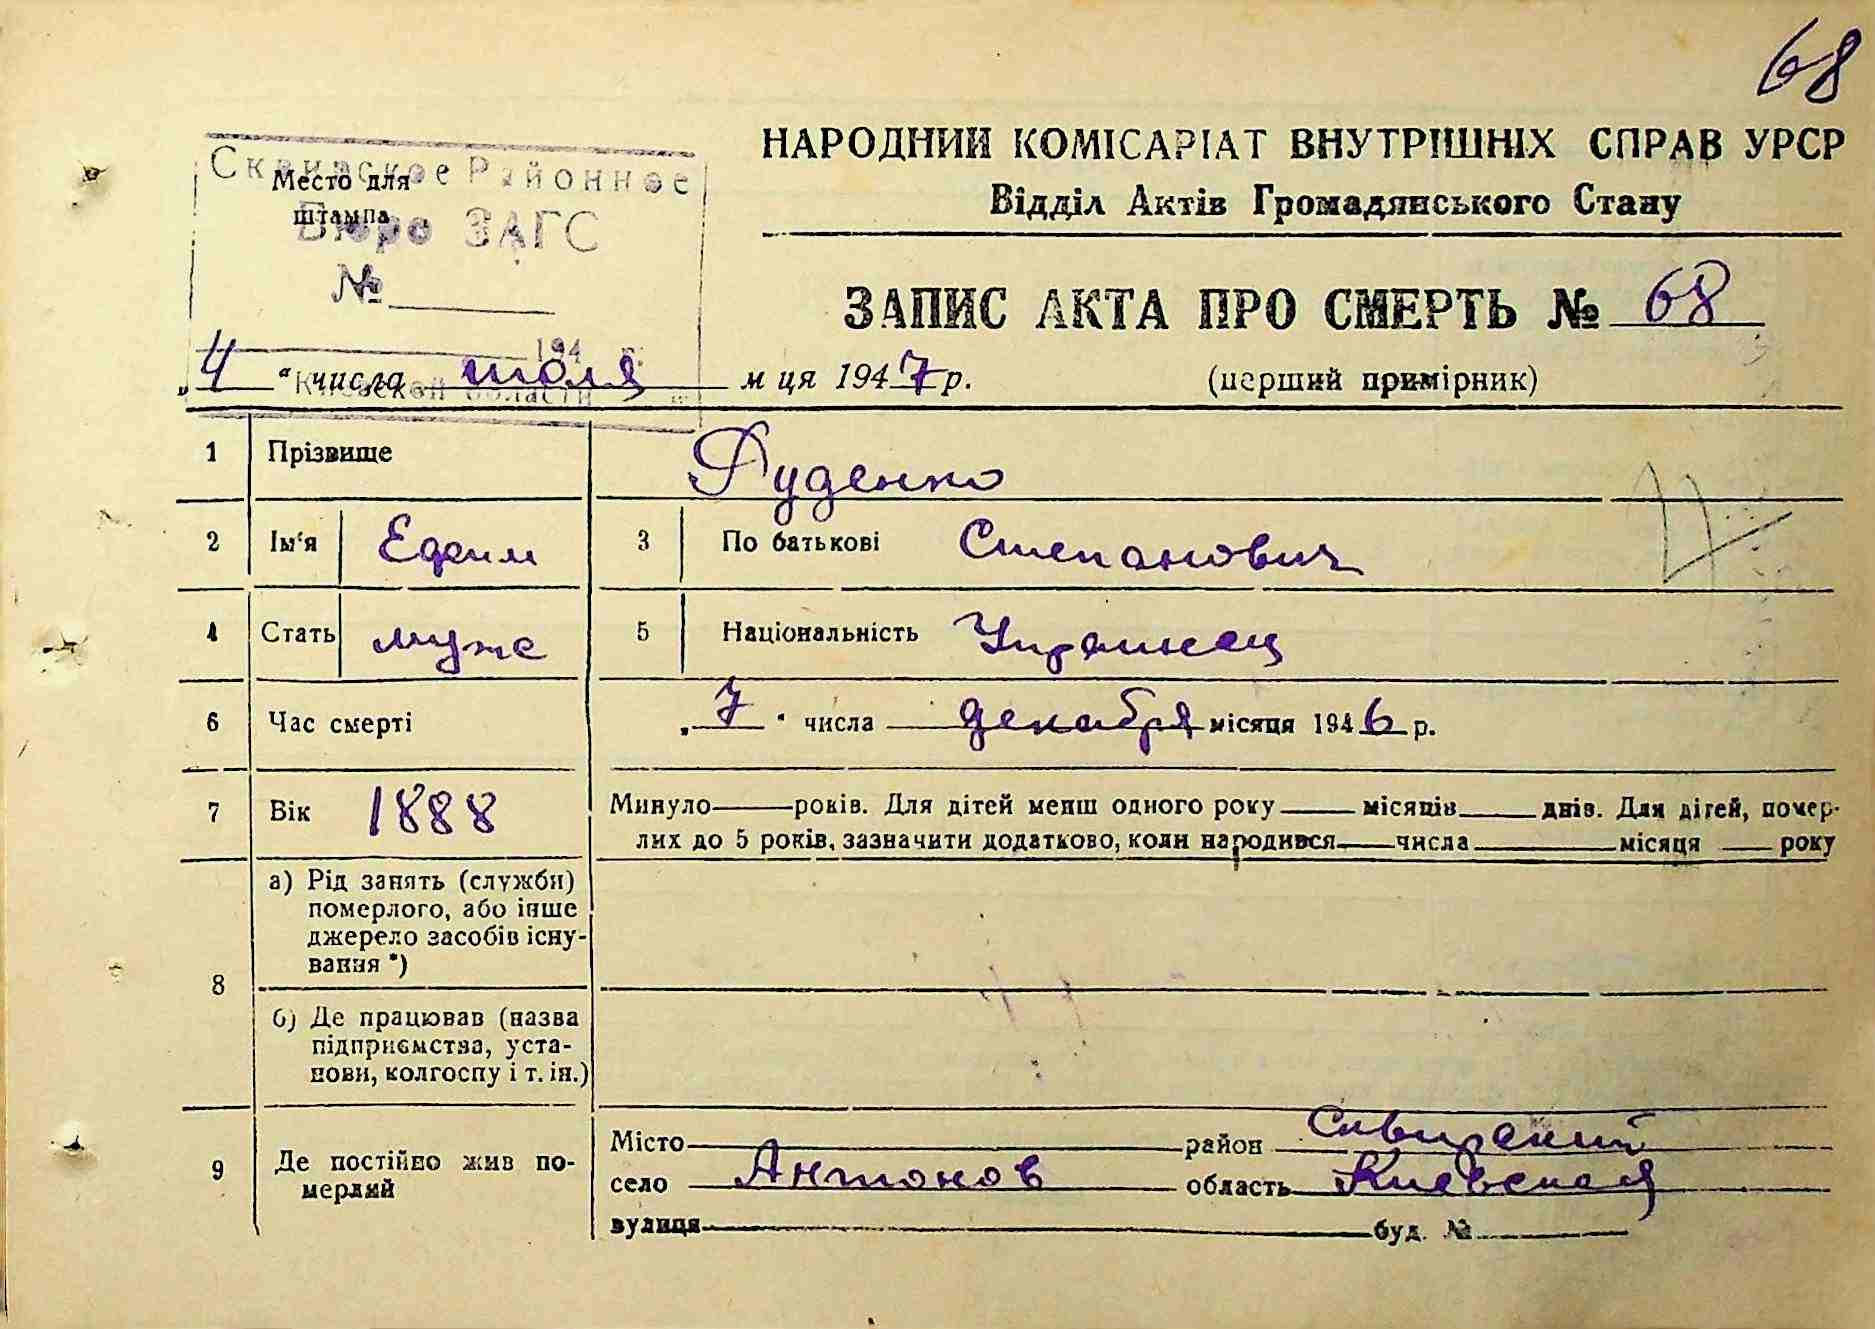 68
НАРОДНИЙ КОМІСАРІАТ ВНУТРІШНІХ СПРАВ УРСР
Відділ Актів Громадянського Стану
Сквирское Районное
Место для
штампа
Бюро ЗАГС
№
194 г.
Киевской области
ЗАПИС АКТА ПРО СМЕРТЬ № 68
„4“ числа июля м ця 1947 р.
(перший примірник)
1 Прізвище Руденко
2 Ім'я Ефим 3 По батькові Степанович
4 Стать муж 5 Національність Украинец
6 Час смерті „7“ числа декабря місяця 1946 р.
7 Вік 1888 Минуло — років. Для дітей менш одного року — місяців — днів. Для дітей, помер-
лих до 5 років, зазначити додатково, коли народився — числа — місяця — року
8 а) Рід занять (служби)
померлого, або інше
джерело засобів існу-
вання *)
б) Де працював (назва
підприємства, уста-
нови, колгоспу і т. ін.)
9 Де постійно жив по-
мерлий
Місто район Сквирский
село Антонов область Киевская
вулиця буд. №